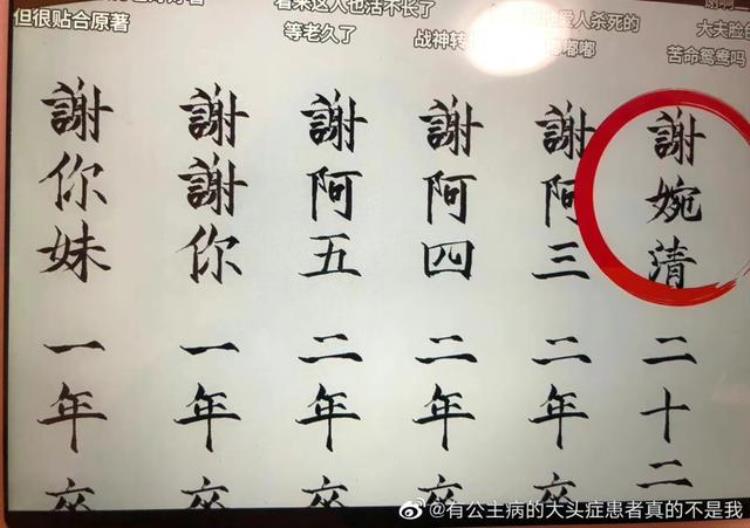 看来这人也活不长了
但很贴合原著
等老久了
战神转
爱人杀死的
大夫脸
苦命鸳鸯吗
謝婉清 二十二
謝阿三 二年卒
謝阿四 二年卒
謝阿五 二年卒
謝謝你 一年卒
謝你妹 一年卒
@有公主病的大头症患者真的不是我